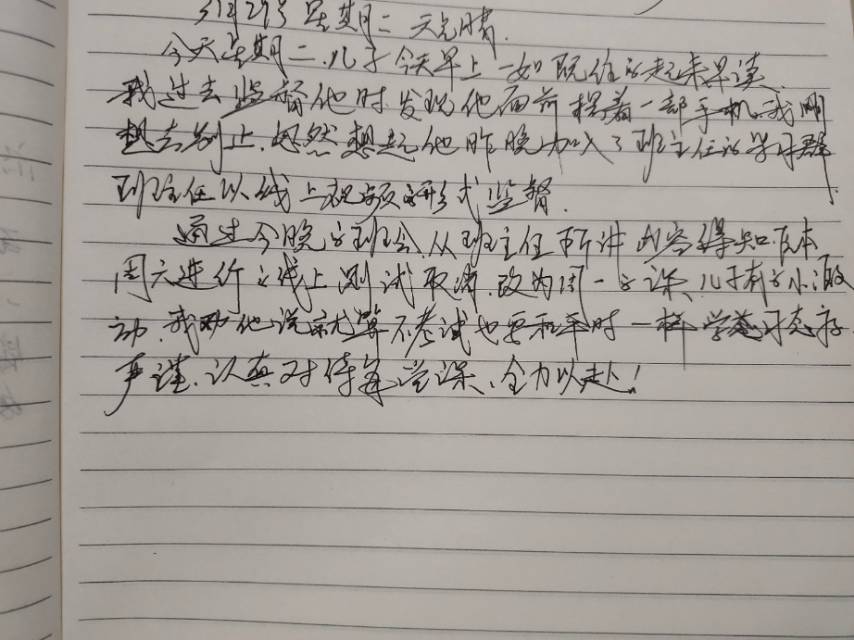 3月29号 星期二 天气晴.
今天星期二.儿子今天早上一如既往的起来早读.
我过去监督他时发现他面前摆着一部手机.我刚
想去制止.忽然想起他昨晚加入了班主任的学习群
班主任以线上视频的形式监督.
通过今晚的班会.从班主任所讲内容得知.原本
周六进行的线上测试取消.改为周一的课.儿子有点小激
动.我劝他说就算不考试也要和平时一样学习态度
严谨.认真对待每堂课、全力以赴!